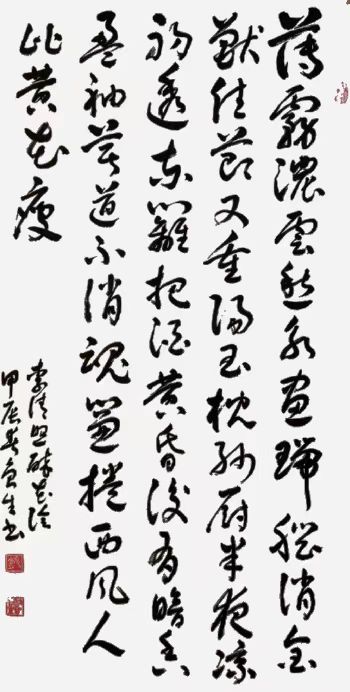 薄霧濃雲愁永晝瑞腦消金
獸佳節又重陽玉枕紗廚半夜涼
初透東籬把酒黃昏後有暗香
盈袖莫道不消魂簾捲西風人
比黃花瘦
李清照醉花陰
甲辰春生書